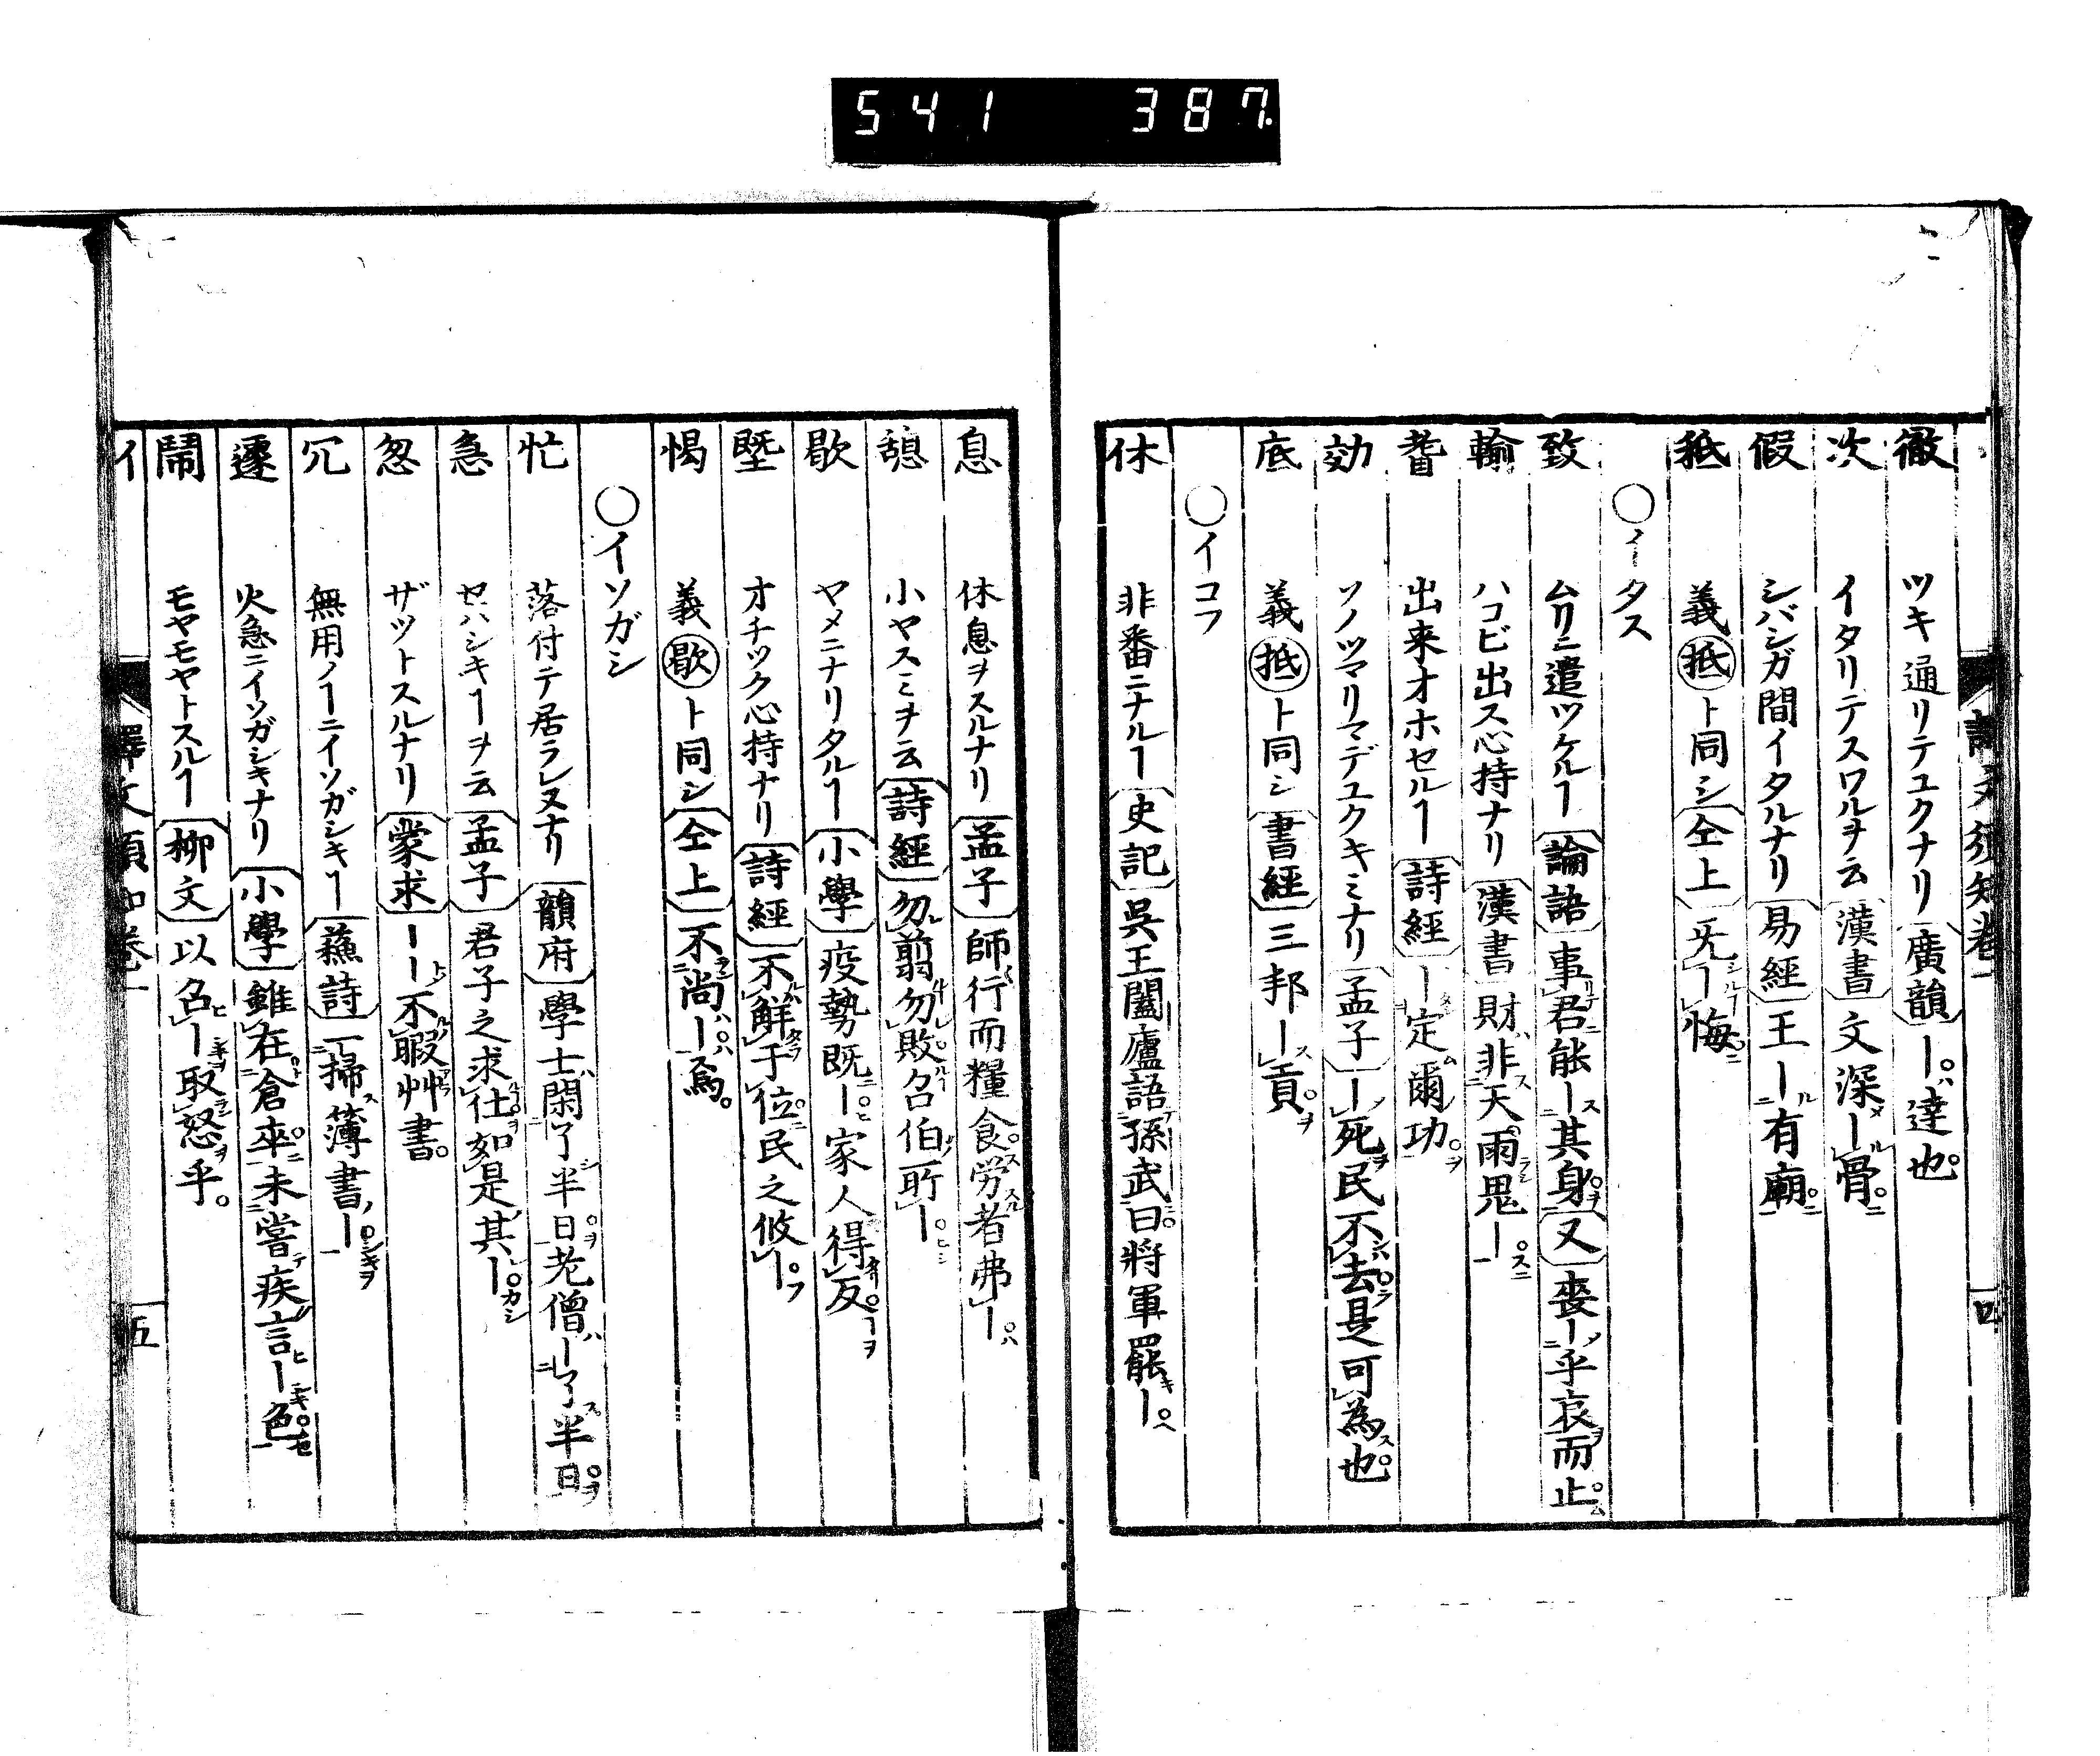 541 387
徹 ツキ通リテユクナリ 廣韻 ー達也
次 イタリテスワルヲ云 漢書 文深ー骨
假 シバシガ間イタルナリ 易經 王ー有廟
牴 義抵ト同シ 仝上 旡ー悔
○イタス
致 ムリニ遣ツケルヿ 論語 事君能ー其身 又 喪ー乎哀而止
輸 ハコビ出ス心持ナリ 漢書 財非天雨鬼ー
耆 出来オホセルヿ 詩經 ー定爾功
効 ソノツマリマデユクキミナリ 孟子 ー死民不去是可為也
底 義抵ト同シ 書經 三邦ー貢
○イコフ
休 非番ニナルヿ 史記 吳王闔廬語孫武曰將軍罷ー
息 休息ヲスルナリ 孟子 師行而糧食労者弗ー
憩 小ヤスミヲ云 詩經 勿翦勿敗召伯所ー
歇 ヤメニナリタルヿ 小學 疫勢既ー家人得反
塈 オチツク心持ナリ 詩經 不解于位民之攸ー
愒 義歇ト同シ 仝上 不尚ー焉
○イソガシ
忙 落付テ居ラレヌナリ 韻府 學士閑了半日老僧ー了半日
急 セハシキヿヲ云 孟子 君子之求仕如是其ー
怱 ザットスルナリ 蒙求 ーー不暇艸書
冗 無用ノヿニイソガシキヿ 蘓詩 一掃簿書ー
遽 火急ニイソガシキナリ 小學 雖在倉卒未嘗疾言ー色
鬧 モヤモヤトスルヿ 柳文 以召ー取怒乎
イ 譯文須知卷一 五